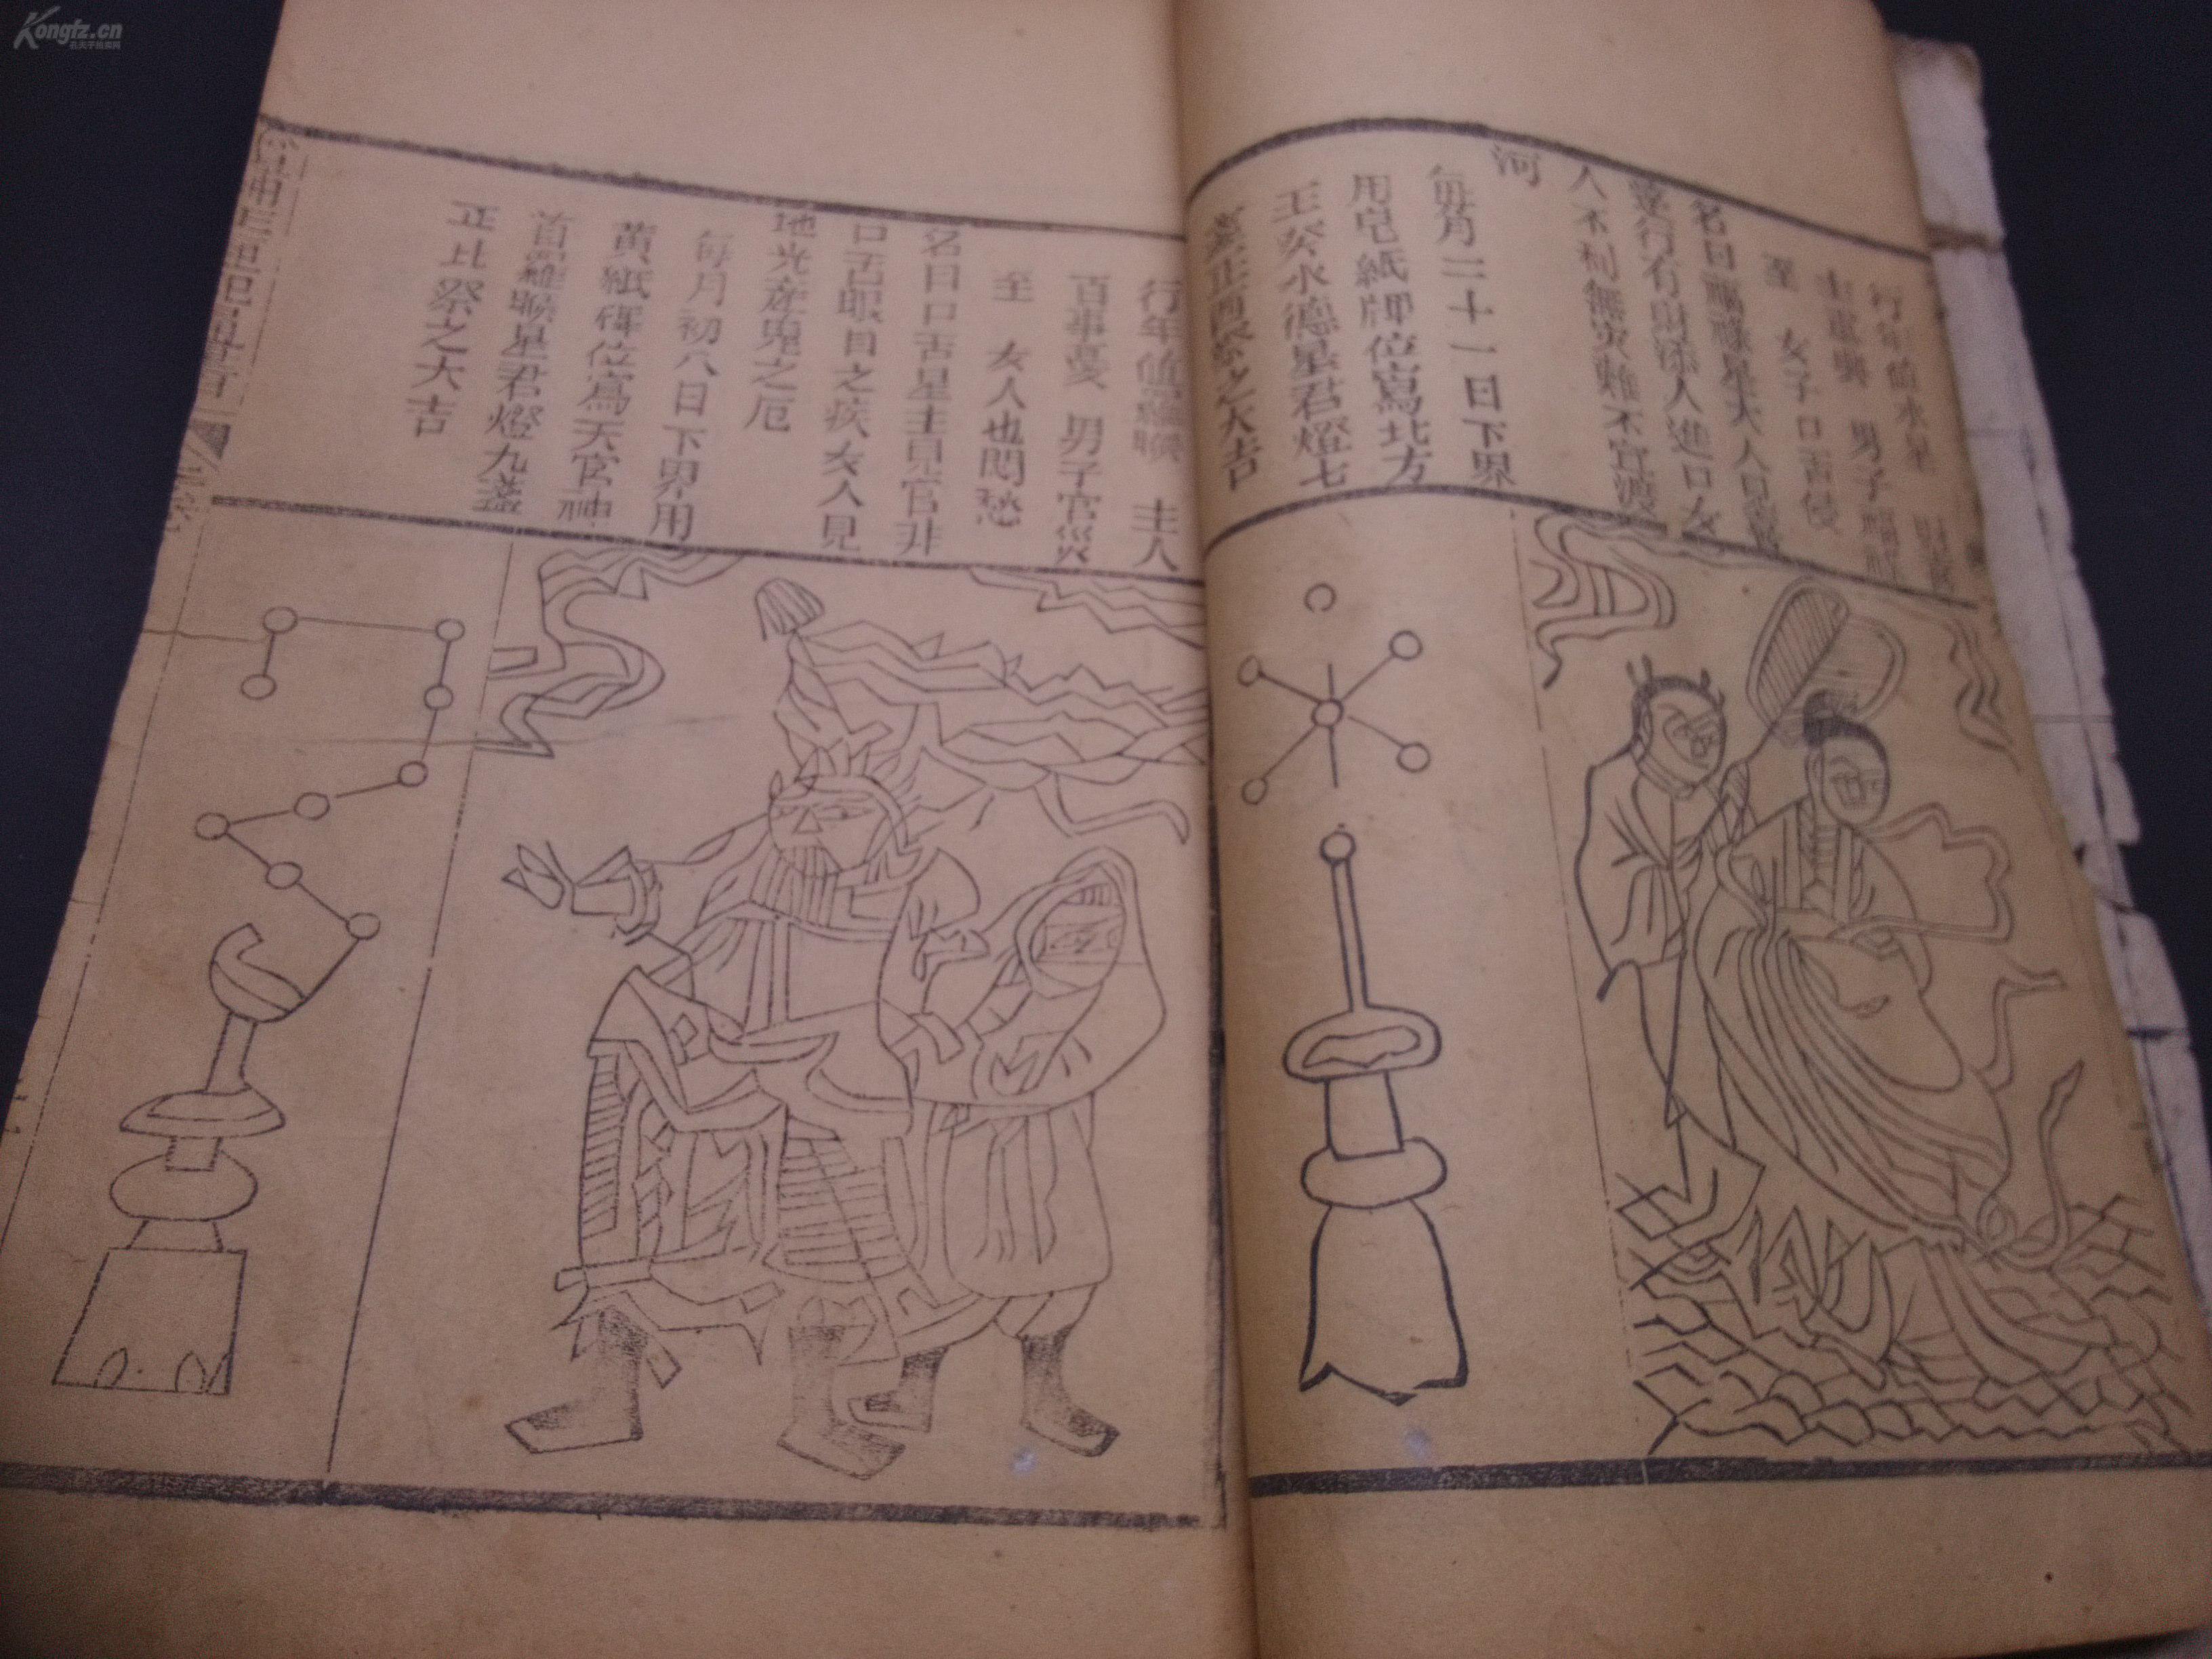 Kongfz.cn
孔夫子旧书网
行年值水星
男子
至 女子口舌侵
名曰福祿星大人
遠行有財添人進口女
人不利無灾難不宜渡
河
每月二十一日下界
用皂紙牌位寫北方
壬癸水德星君燈七
盞正西祭之大吉
行年值羅睺 主人
百事憂 男子官災
至 女人也悶愁
名曰口舌星主見官非
口舌眼目之疾女人見
地光産鬼之厄
每月初八日下界用
黄紙碑位寫天官神
首羅睺星君燈九盞
正北祭之大吉